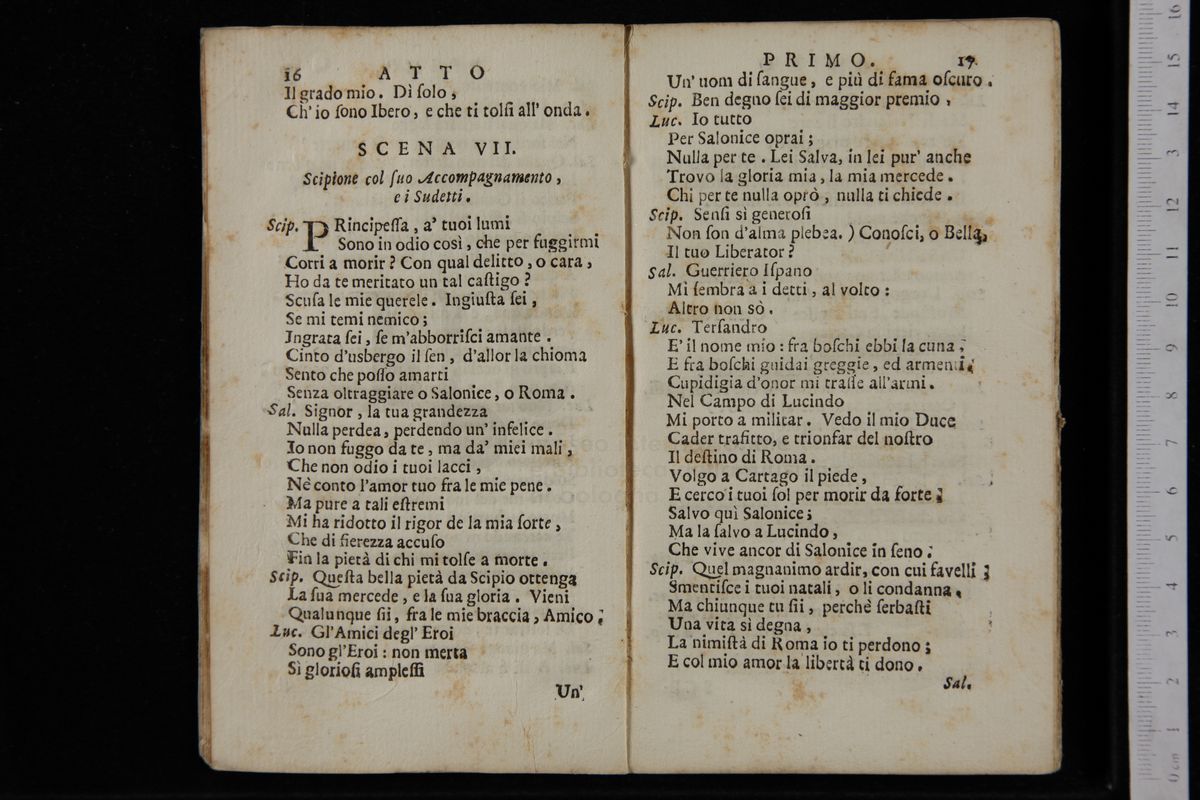 16 ATTO
Il grado mio. Dì solo,
Ch' io ſono Ibero, e che ti tolſi all' onda.
SCENA VII.
Scipione col ſuo Accompagnamento,
e i Sudetti.
Scip. PRincipeſſa, a' tuoi lumi
Sono in odio così, che per fuggirmi
Corri a morir? Con qual delitto, o cara,
Ho da te meritato un tal caſtigo?
Scuſa le mie querele. Ingiuſta ſei,
Se mi temi nemico;
Ingrata ſei, ſe m'abborriſci amante.
Cinto d'usbergo il ſen, d'allor la chioma
Sento che poſſo amarti
Senza oltraggiare o Salonice, o Roma.
Sal. Signor, la tua grandezza
Nulla perdea, perdendo un' infelice.
Io non fuggo da te, ma da' miei mali,
Che non odio i tuoi lacci,
Nè conto l'amor tuo fra le mie pene.
Ma pure a tali eſtremi
Mi ha ridotto il rigor de la mia ſorte,
Che di fierezza accuſo
Fin la pietà di chi mi tolſe a morte.
Scip. Queſta bella pietà da Scipio ottenga
La ſua mercede, e la ſua gloria. Vieni
Qualunque ſii, fra le mie braccia, Amico;
Luc. Gl'Amici degl' Eroi
Sono gl'Eroi: non merta
Sì glorioſi ampleſſi
Un'
PRIMO. 17.
Un' uom di ſangue, e più di fama oſcuro.
Scip. Ben degno ſei di maggior premio,
Luc. Io tutto
Per Salonice oprai;
Nulla per te. Lei Salva, in lei pur' anche
Trovo la gloria mia, la mia mercede.
Chi per te nulla oprò, nulla ti chiede.
Scip. Senſi sì generoſi
Non ſon d'alma plebea.) Conoſci, o Bella,
Il tuo Liberator?
Sal. Guerriero Iſpano
Mi ſembra a i detti, al volto:
Altro non sò.
Luc. Terſandro
E' il nome mio: fra boſchi ebbi la cuna;
E fra boſchi guidai greggie, ed armenti;
Cupidigia d'onor mi traſſe all'armi.
Nel Campo di Lucindo
Mi porto a militar. Vedo il mio Duce
Cader trafitto, e trionfar del noſtro
Il deſtino di Roma.
Volgo a Cartago il piede,
E cerco i tuoi ſol per morir da forte;
Salvo quì Salonice;
Ma la ſalvo a Lucindo,
Che vive ancor di Salonice in ſeno.
Scip. Quel magnanimo ardir, con cui favelli;
Smentiſce i tuoi natali, o li condanna.
Ma chiunque tu ſii, perchè ſerbaſti
Una vita sì degna,
La nimiſtà di Roma io ti perdono;
E col mio amor la libertà ti dono.
Sal.